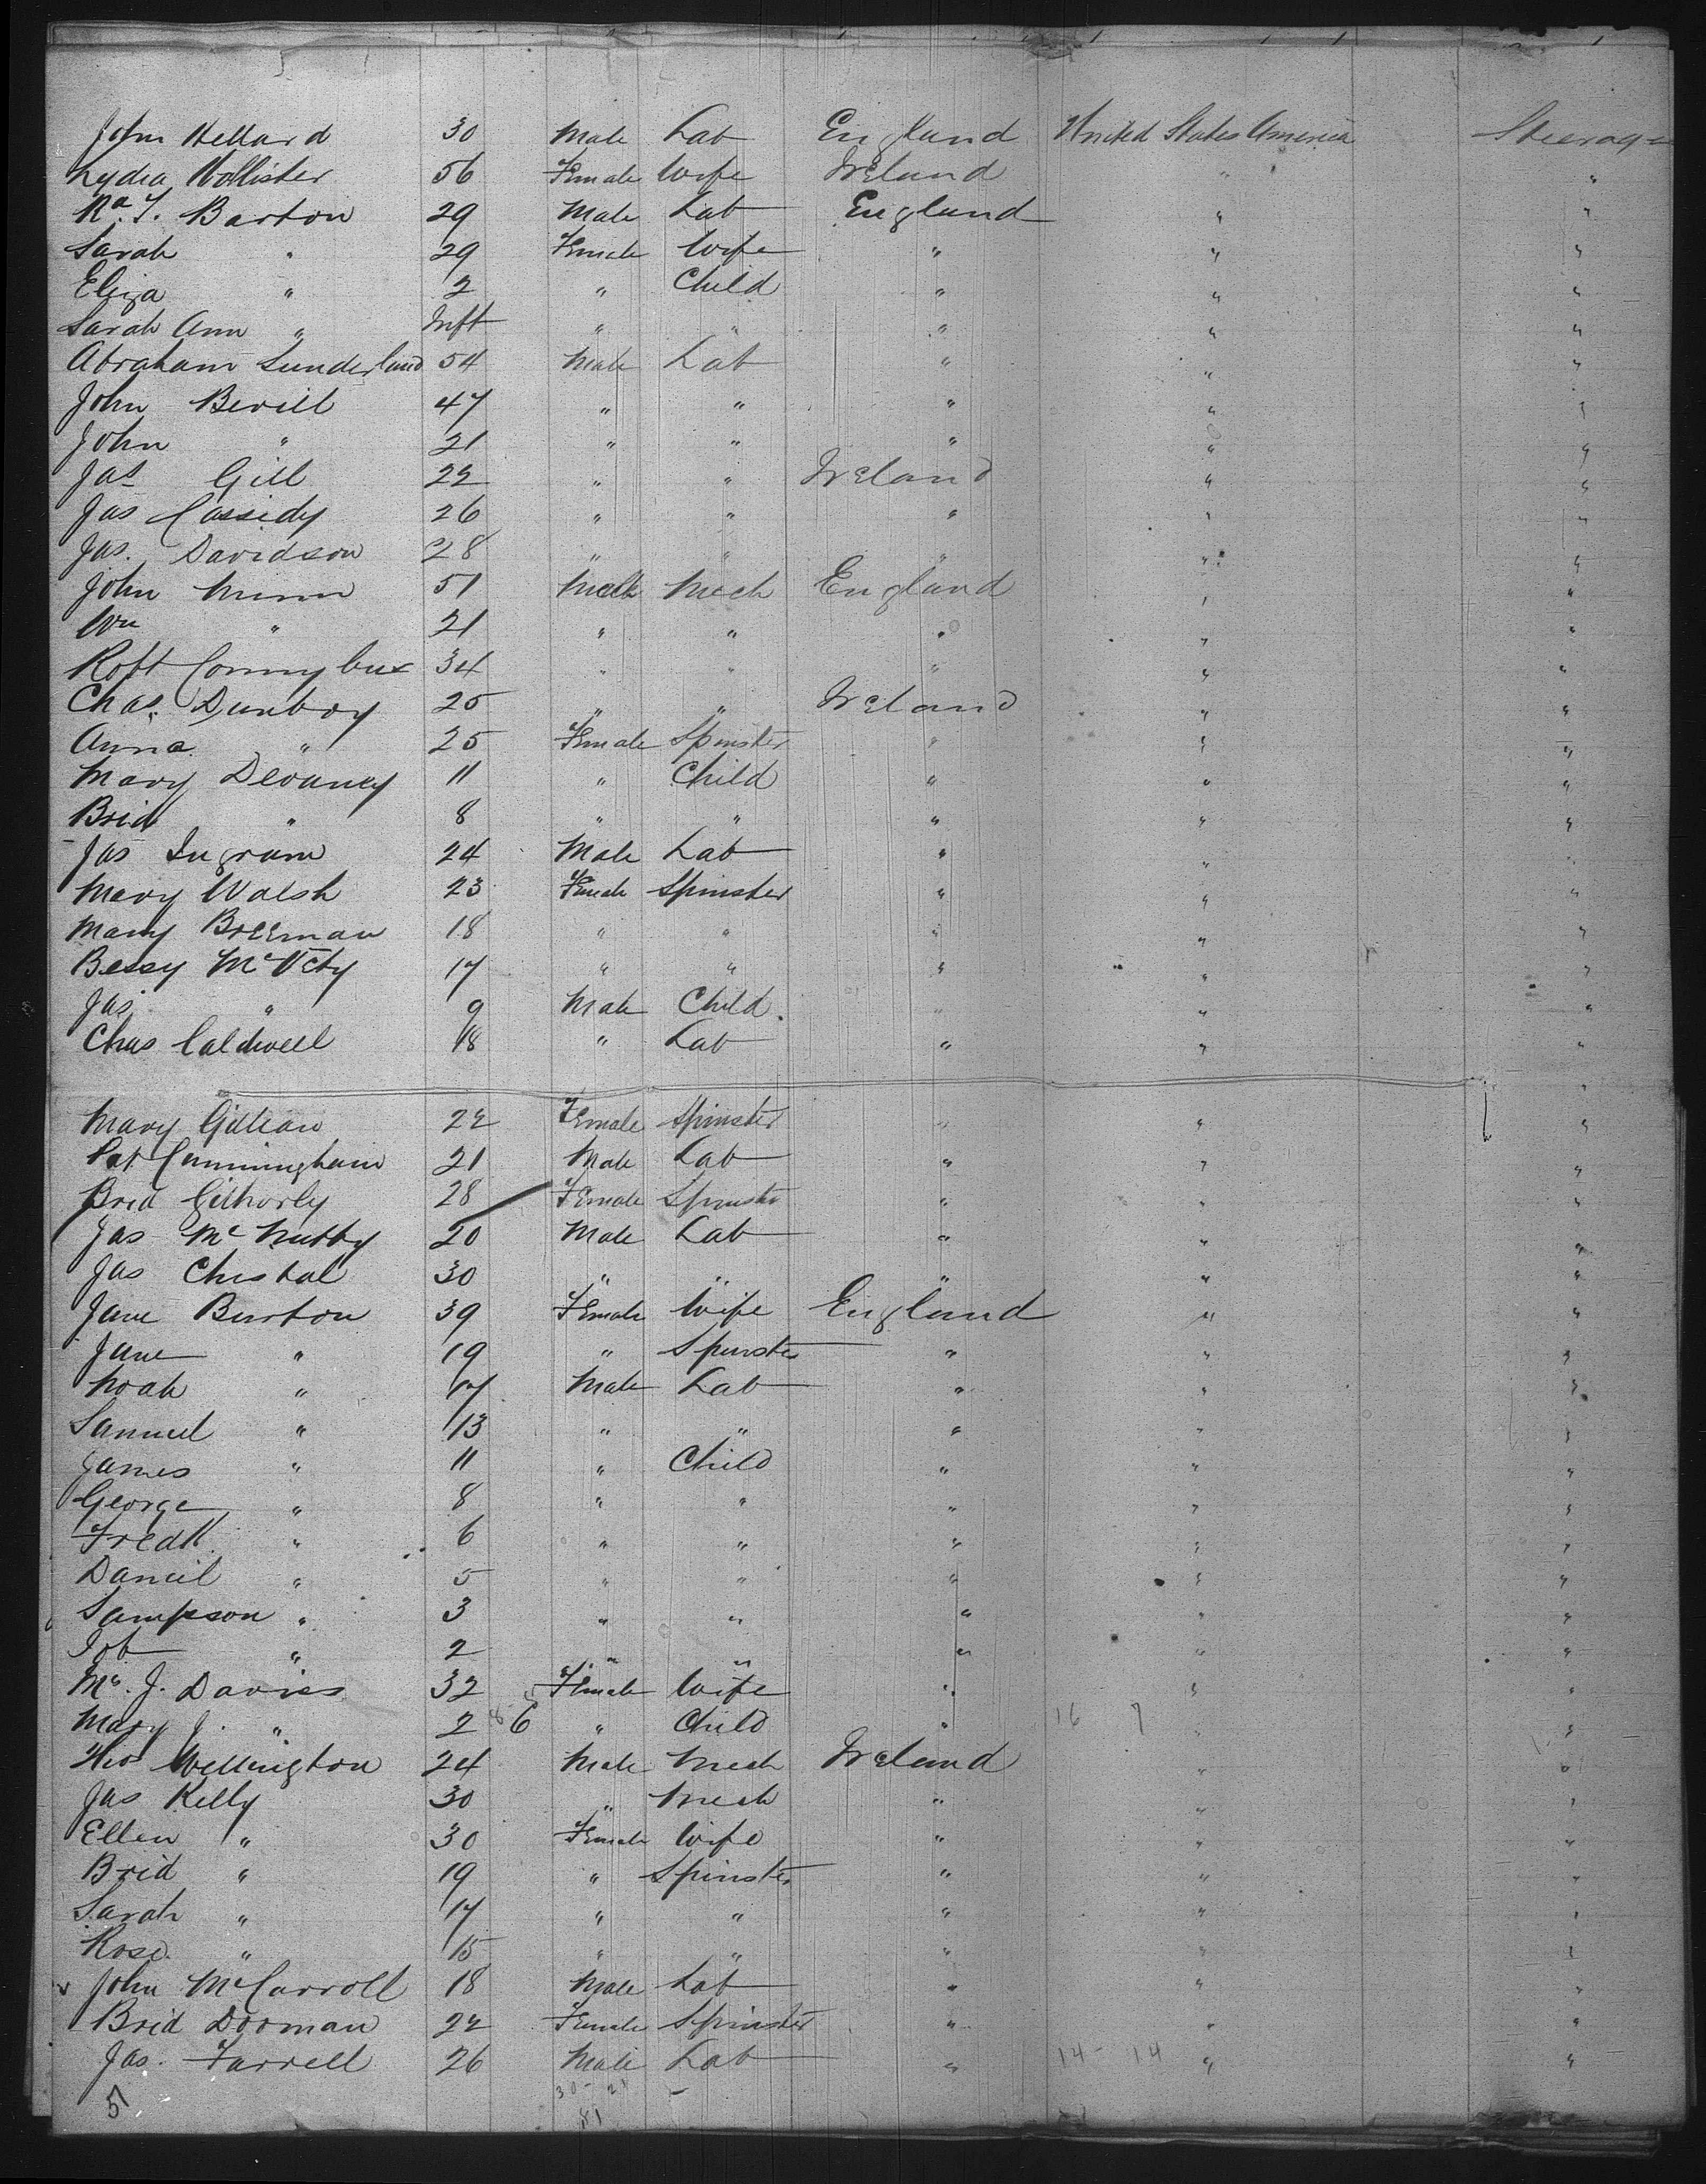 John Hellard 30 Male Lab England United States America Steerage
Lydia Hollister 56 Female Wife Ireland " "
Barton 29 Male Lab England " "
Sarah " 29 Female Wife " " "
Eliza " 2 " Child " " "
Sarah Ann " Inft " " " " "
Abraham Sunderland 54 Male Lab " " "
John Bevill 47 " " " " "
John " 21 " " " " "
Jas Gill 22 " " Ireland " "
Jas Cassidy 26 " " " " "
Jas. Davidson 28 " " " " "
John Minn 51 Male Mech England " "
Wm " 21 " " " " "
Robt 34 " " " " "
Chas. Dunboy 25 " " Ireland " "
Anna " 25 Female Spinster " " "
Mary Devaney 11 " Child " " "
Brid " 8 " " " " "
Jas Ingram 24 Male Lab " " "
Mary Walsh 23 Female Spinster " " "
Mary Breeman 18 " " " " "
Bessy McVety 17 " " " " "
Jas " 9 Male Child " " "
Chas Caldwell 18 " Lab " " "
Mary Gillean 22 Female Spinster " " "
Pat Cunningham 21 Male Lab " " "
Brid 28 Female Spinster " " "
Jas McNutty 20 Male Lab " " "
Jas Chestal 30 " " " " "
Jane Burton 39 Female Wife England " "
Jane " 19 " Spinster " " "
Noah " 17 Male Lab " " "
Samuel " 13 " " " " "
James " 11 " Child " " "
George " 8 " " " " "
Fredk. " 6 " " " " "
Daniel " 5 " " " " "
Sampson " 3 " " " " "
Job " 2 " " " " "
Mrs. J. Davies 32 Female Wife " " "
Mary J. " 2 6 " Child " 16 7 " "
Thos Wellington 24 Male Mech Ireland " "
Jas Kelly 30 " Mech " " "
Ellen " 30 Female Wife " " "
Brid " 19 " Spinster " " "
Sarah " 17 " " " " "
Rose " 15 " " " " "
John McCarroll 18 Male Lab " " "
Brid Dorman 22 Female Spinster " " "
Jas. Farrell 26 Male Lab " 14 - 14 " "
51